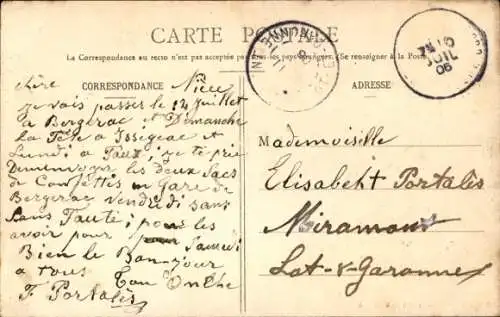 CARTE POSTALE
La Correspondance au recto n'est pas acceptée par tous les pays étrangers. (Se renseigner à la Poste)
CORRESPONDANCE
ADRESSE
chère Nièce
je vais passer le 14 juillet
a Bergerac et Dimanche
la fête a Issegeac et
Lundi a Faux, je te prie
Denvoyer les deux Sacs
de Confettis en Gare de
Bergerac Vendredi sans
Sans Faute; pour les
avoir pour Samedi
Bien le Bonjour
a tous Ton Onche
F Portalis
Mademoiselle
Elisabeht Portalis
Miramont
Lot-&-Garonne
JUIL
06